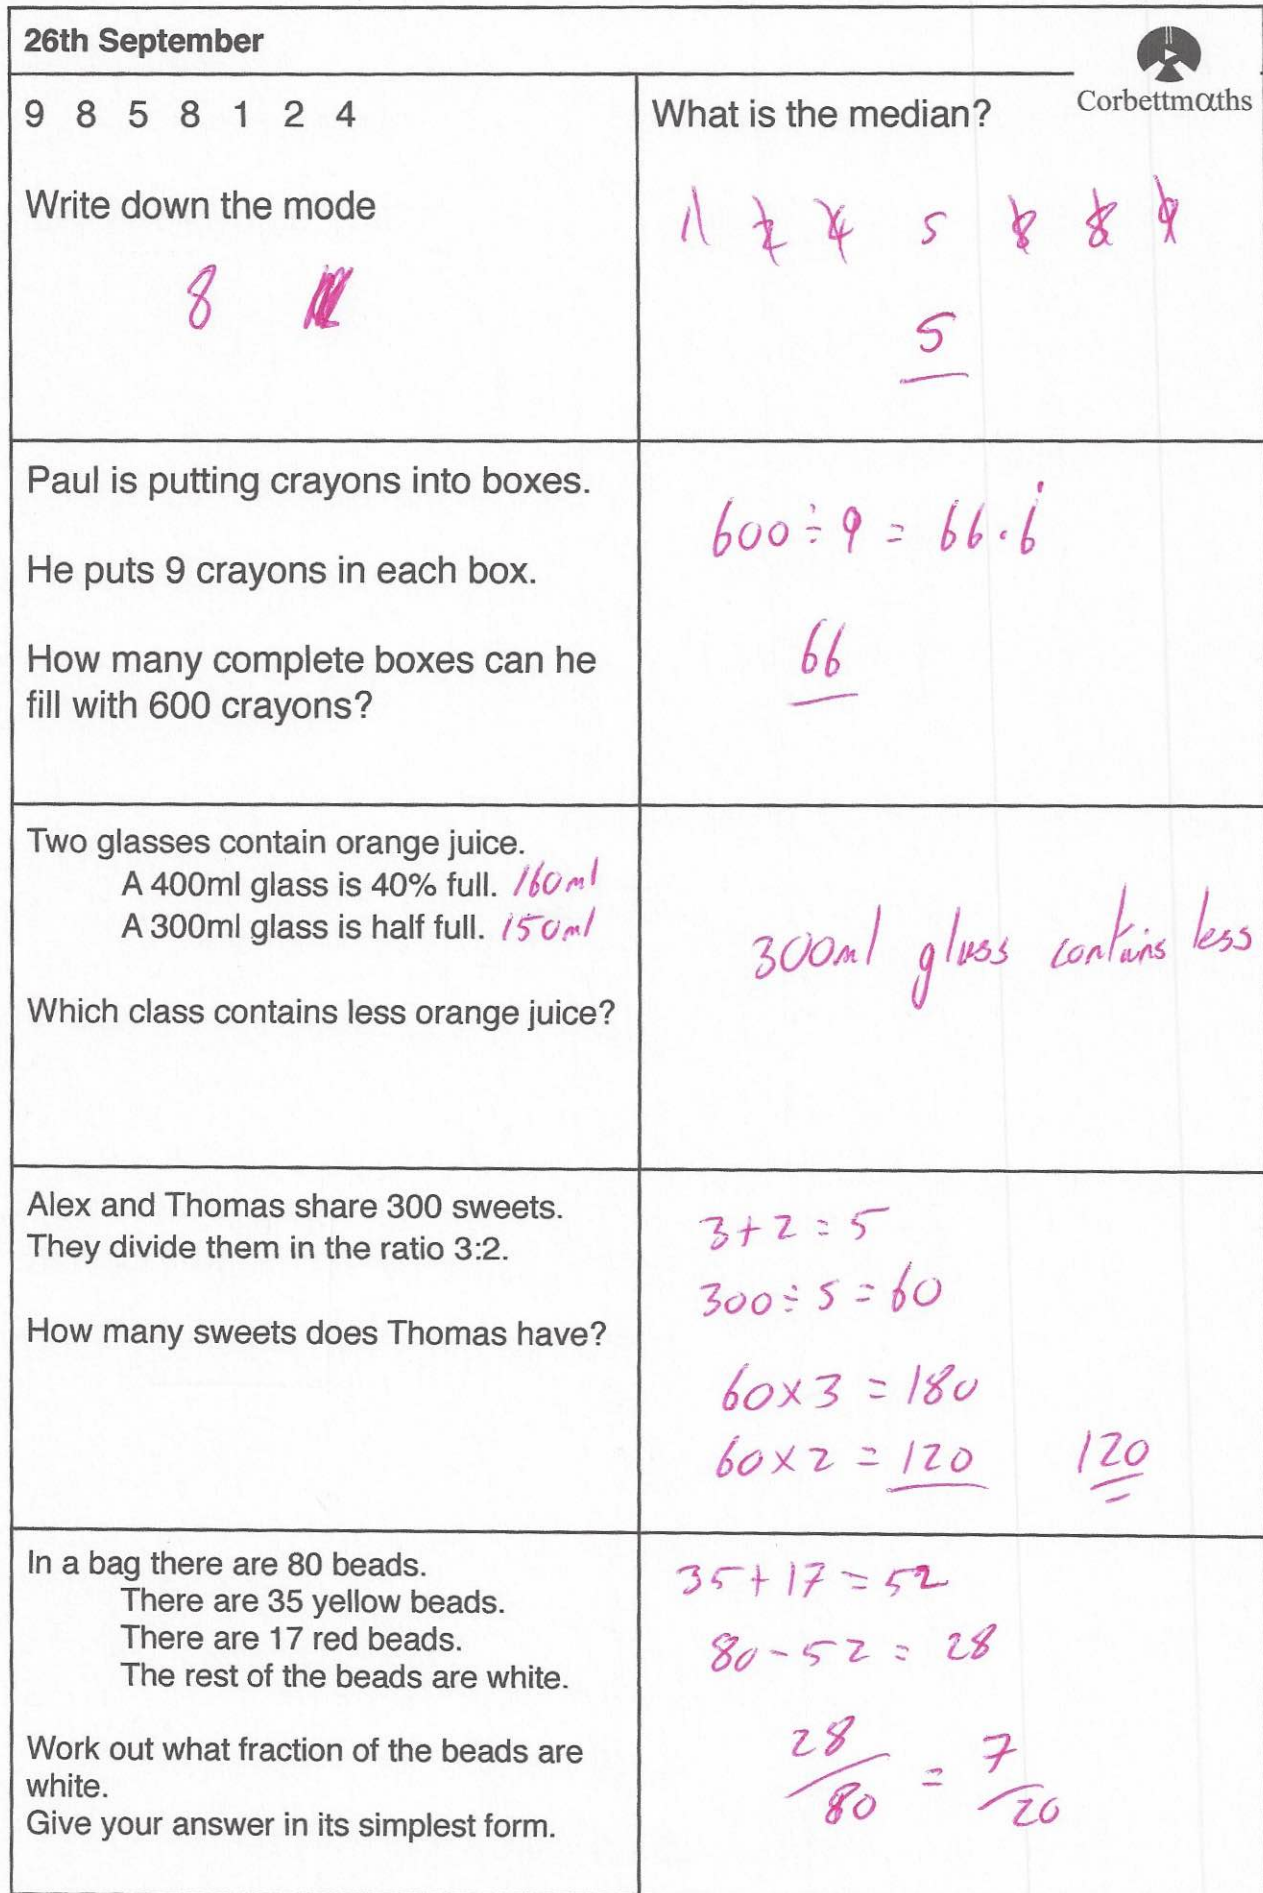 26th September
Corbettmαths
9 8 5 8 1 2 4
Write down the mode
8
What is the median?
1 2 4 5 8 8 9
5
Paul is putting crayons into boxes.
He puts 9 crayons in each box.
How many complete boxes can he
fill with 600 crayons?
600 ÷ 9 = 66.6̇
66
Two glasses contain orange juice.
A 400ml glass is 40% full. 160ml
A 300ml glass is half full. 150ml
Which class contains less orange juice?
300ml glass contains less
Alex and Thomas share 300 sweets.
They divide them in the ratio 3:2.
How many sweets does Thomas have?
3+2=5
300÷5=60
60×3=180
60×2=120 120
In a bag there are 80 beads.
There are 35 yellow beads.
There are 17 red beads.
The rest of the beads are white.
Work out what fraction of the beads are
white.
Give your answer in its simplest form.
35+17=52
80-52=28
28/80 = 7/20